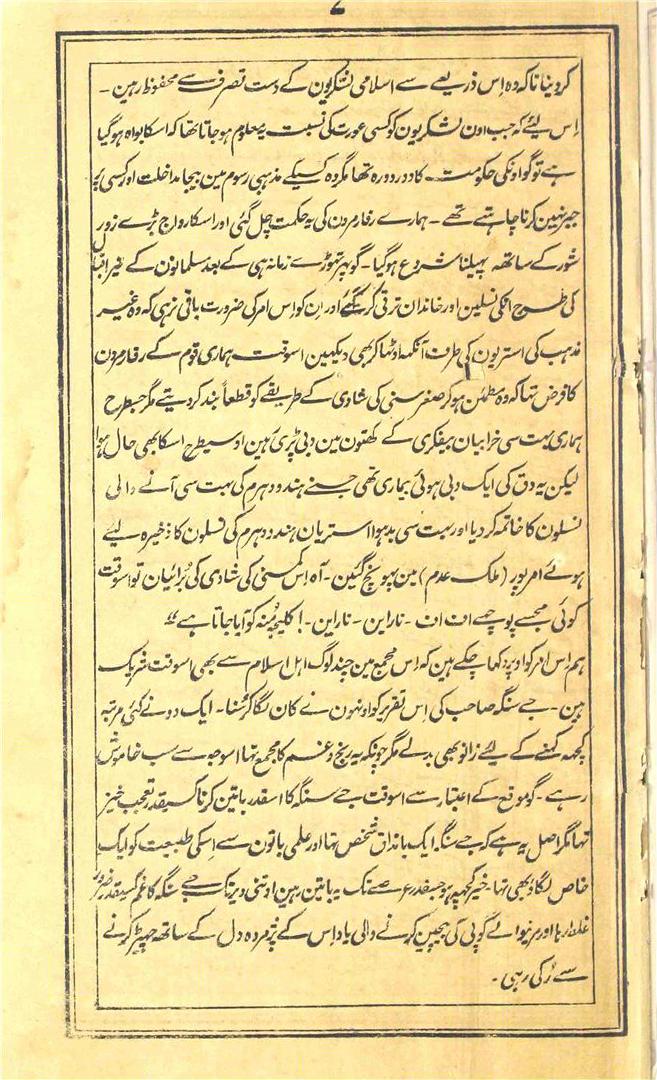 ۷
کردینا تاکہ وہ اِس ذریعے سے اسلامی لشکریون کے دست تصرف سے محفوظ رہین -
اِس لیئے کہ جب اون لشکریون کو کسی عورت کی نسبت یہ معلوم ہوجاتا تھا کہ اسکا بواہ ہوگیا
ہے تو گو اونکی حکومت کا دور دورہ تھا مگر وہ کسیکے مذہبی رسوم مین بیجا مداخلت اور کسی پر
جبر نہین کرنا چاہتے تھے - ہمارے رفارمرون کی یہ حکمت چل گئی اور اسکا رواج بڑے زور
شور کے ساتھ پہیلنا شروع ہوگیا - گو پہر تہوڑے زمانہ ہی کے بعد مسلمانون کے نیر اقبال
کی طرح انکی نسلین اور خاندان ترقی کر گئے اور اِن کو اِس امر کی ضرورت باقی نرہی کہ وہ غیر
مذہب کی استریون کی طرف آنکھ اوٹہا کر بھی دیکہین اسوقت ہماری قوم کے رفارمرون
کا فرض تہا کہ وہ مطمئن ہوکر صغر سنی کی شادی کے طریقے کو قطعاً بند کر دیتے مگر جسطرح
ہماری بہت سی خرابیان بیفکری کے ہاتھون مین دبی پڑی ہین اوسیطرح اسکا بھی حال ہوا
لیکن یہ دق کی ایک دبی ہوئی بیماری تھی جسنے ہندو دہرم کی بہت سی آنے والی
نسلون کا خاتمہ کر دیا اور بہت سی بدہوا استریان ہندو دہرم کی نسلون کا ذخیرہ لیئے
ہوئے امرپور (ملک عدم) مین پہونچ گئین - آہ اِس کمسنی کی شادی کی بُرائیان تو اسوقت
کوئی مجھسے پوچھے اف اف - نارابن - نارابن - ! کلیجہ مُنہ کو آیا جاتا ہے“
ہم اِس امر کو اوپر دکھا چکے ہین کہ اِس مجمع مین چند لوگ اہل اسلام سے بھی اسوقت شریک
ہین - جے سنگہ صاحب کی اِس تقریر کو اونہون نے کان لگا کر سُنا - ایک دو نے کئی مرتبہ
کچھہ کہنے کے لیئے زانو بھی بدلے مگر چونکہ یہ رنج و غم کا مجمع تہا اسوجہ سے سب خاموش
رہے - گو موقع کے اعتبار سے اسوقت جے سنگہ کا اسقدر باتین کرنا کسیقدر تعجب خیز
تہا مگر اصل یہ ہے کہ جے سنگہ ایک بامذاق شخص تہا اور علمی باتون سے اِسکی طبیعت کو ایک
خاص لگاؤ بھی تہا - خیر کچھہ ہو جسقدر عرصے تک یہ باتین رہین اوتنی دیر تک جے سنگہ کا غم کسیقدر ضرور
غلط رہا اور مرنیوالے گوپی کی بیچین کرنے والی یاد اِس کے پژمردہ دل کے ساتھ چہیڑ کرنے
سے رُکی رہی -